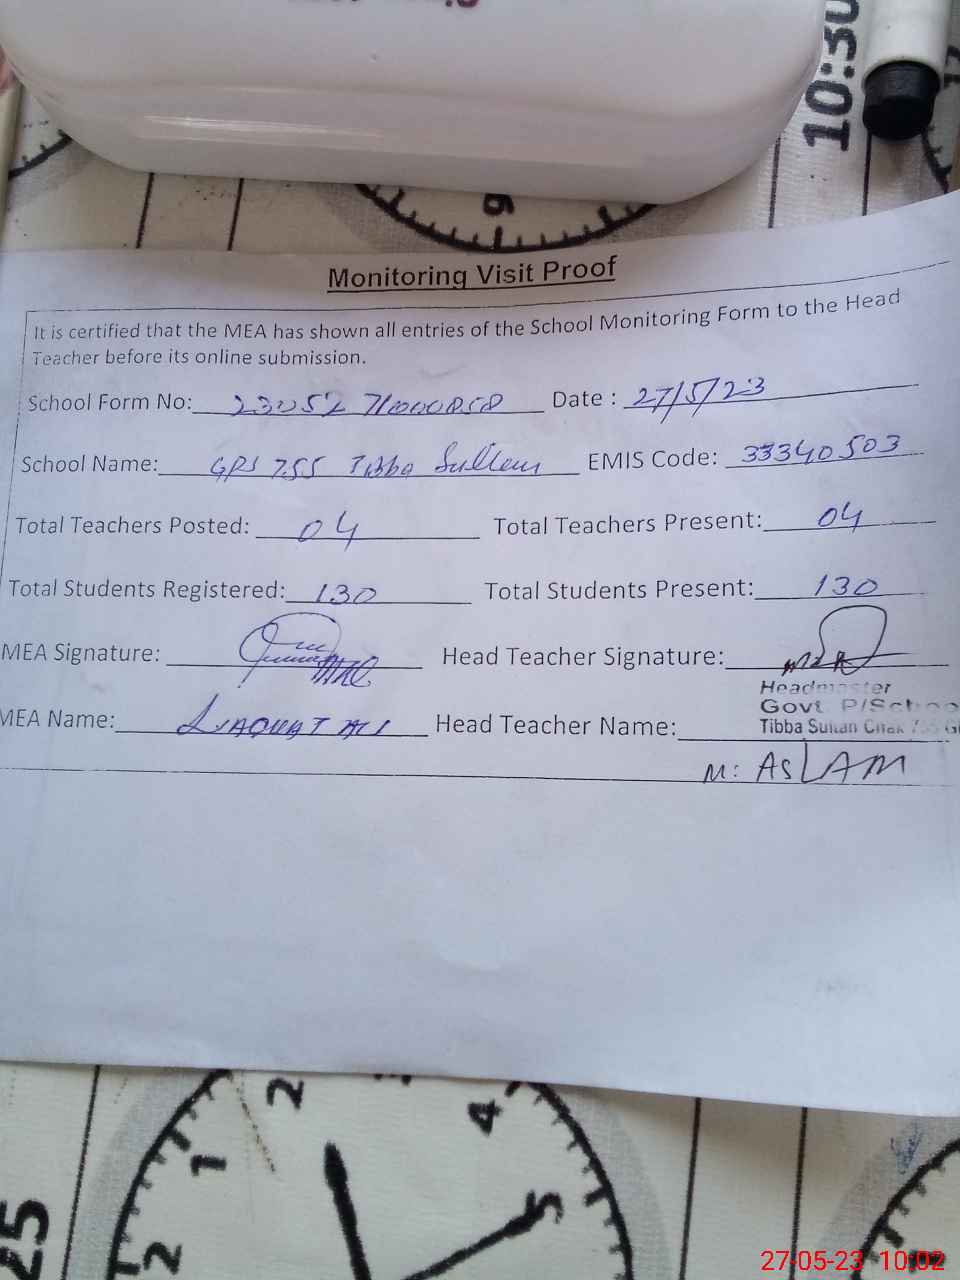 10:30
6
Monitoring Visit Proof
It is certified that the MEA has shown all entries of the School Monitoring Form to the Head
Teacher before its online submission.
School Form No: Date : 27/5/23
School Name: GPS 755 Tibba Sultan EMIS Code: 33340503
Total Teachers Posted: 04 Total Teachers Present: 04
Total Students Registered: 130 Total Students Present: 130
MEA Signature: Head Teacher Signature:
Headmaster
Govt P/School
Tibba Sultan Chak
MEA Name: LIAQUAT ALI Head Teacher Name:
M: ASLAM
2 4
1 5
25 2
27-05-23 10:02